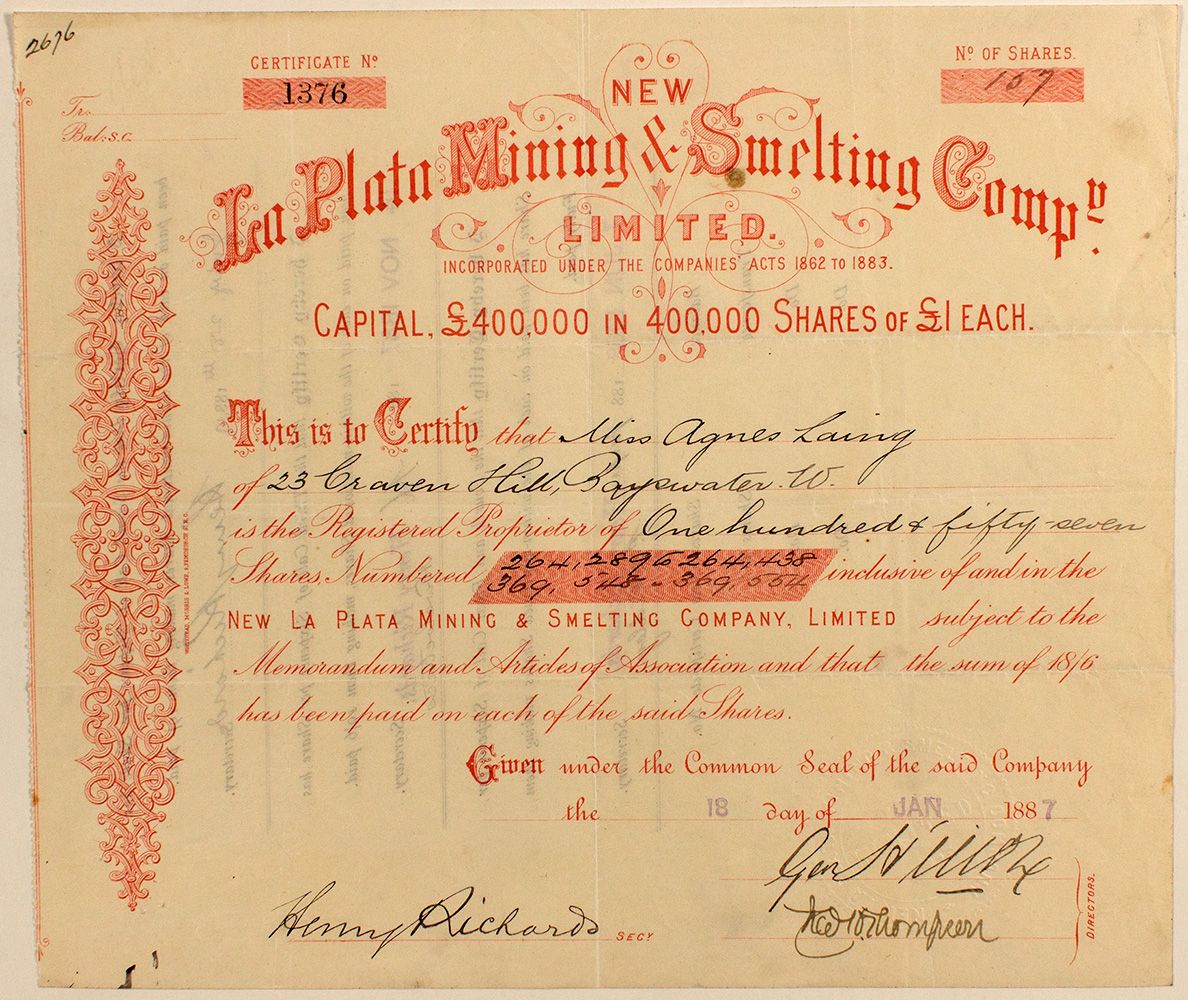 2676
CERTIFICATE Nº
1376
Nº OF SHARES.
157
Tr.
Bal: S.C.
NEW
La Plata Mining & Smelting Compy.
LIMITED.
INCORPORATED UNDER THE COMPANIES' ACTS 1862 TO 1883.
CAPITAL, £400,000 IN 400,000 SHARES OF £1 EACH.
This is to Certify that Miss Agnes Laing
of 23 Craven Hill, Bayswater. W.
is the Registered Proprietor of One hundred & fifty-seven
Shares, Numbered 264,289 to 264,438
369,548 - 369,554 inclusive of and in the
NEW LA PLATA MINING & SMELTING COMPANY, LIMITED subject to the
Memorandum and Articles of Association and that the sum of 18/6
has been paid on each of the said Shares.
Given under the Common Seal of the said Company
the 18 day of JAN 1887
Henry Richards SECY
Thompson
DIRECTORS.